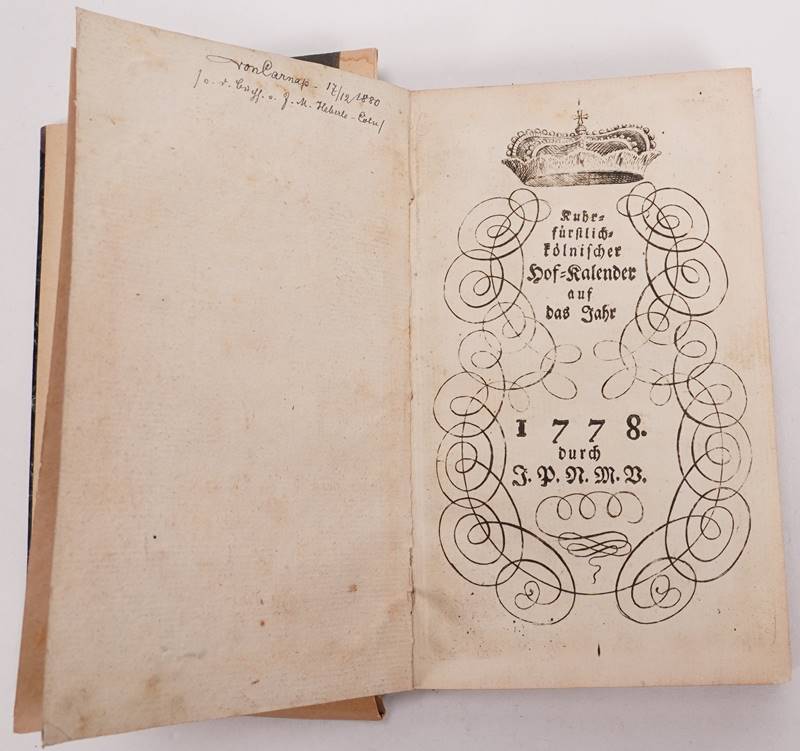 von Carnap - 17/12 1880
/ a. d. Buchh. v. J. M. Heberle - Cöln /
Kuhr-
fürstlich-
kölnischer
Hof-Kalender
auf
das Jahr
1778.
durch
J. P. N. M. V.